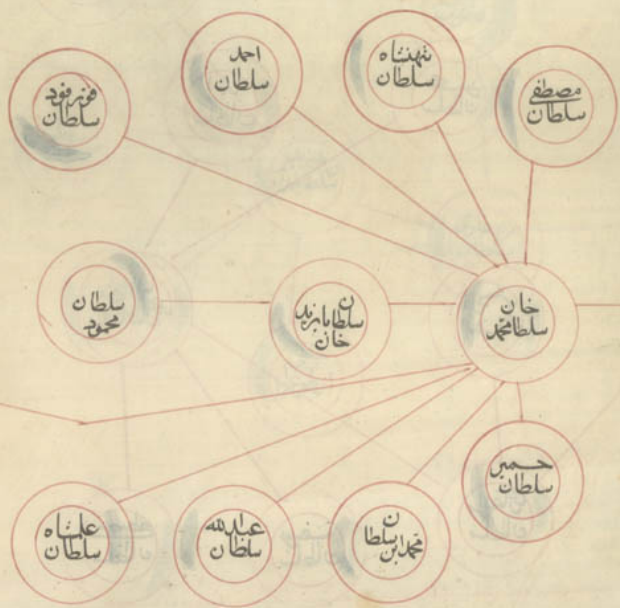 مصطفى
سلطان
شهنشاه
سلطان
احمد
سلطان
قورقود
سلطان
خان
سلطان محمد
سلطان بايزيد
خان
سلطان
محمود
سلطان
محمد ابن سلطان
عبدالله
سلطان
علمشاه
سلطان